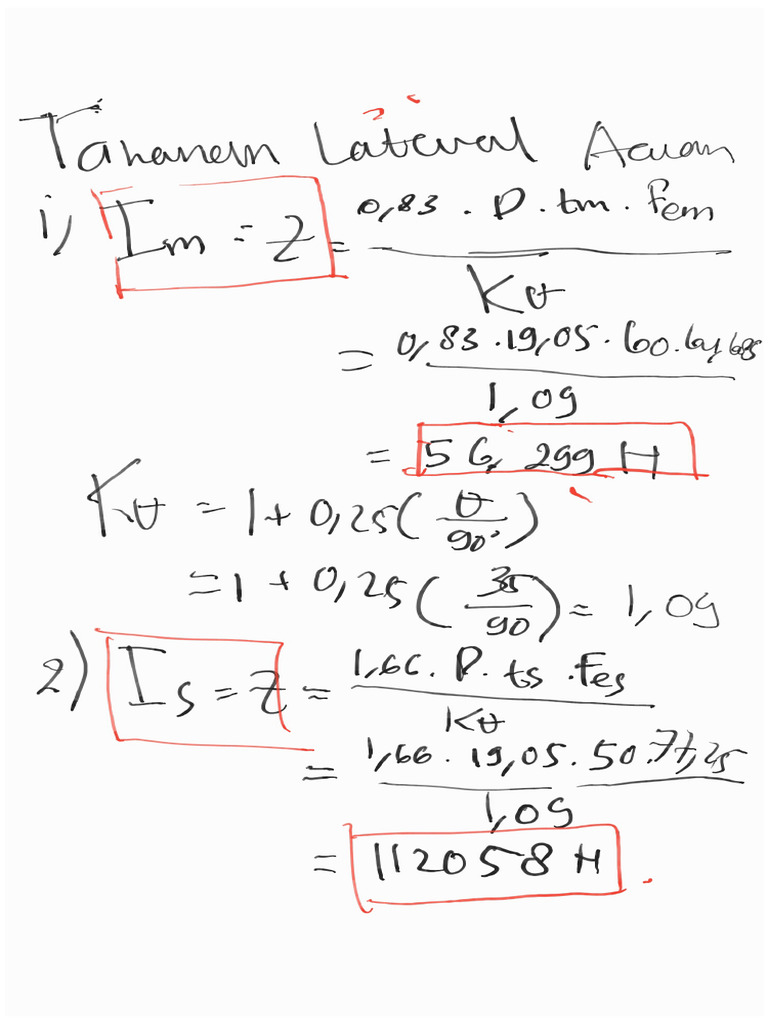 Tahanan Lateral Acuan
1) Im = Z = 0,83 . D . tm . Fem / Kθ
= 0,83 . 19,05 . 60 . 64,685 / 1,09
= 56,299 N
Kθ = 1 + 0,25 ( θ / 90° )
= 1 + 0,25 ( 35 / 90 ) = 1,09
2) Is = Z = 1,66 . D . ts . Fes / Kθ
= 1,66 . 19,05 . 50 . 77,25 / 1,09
= 112058 N